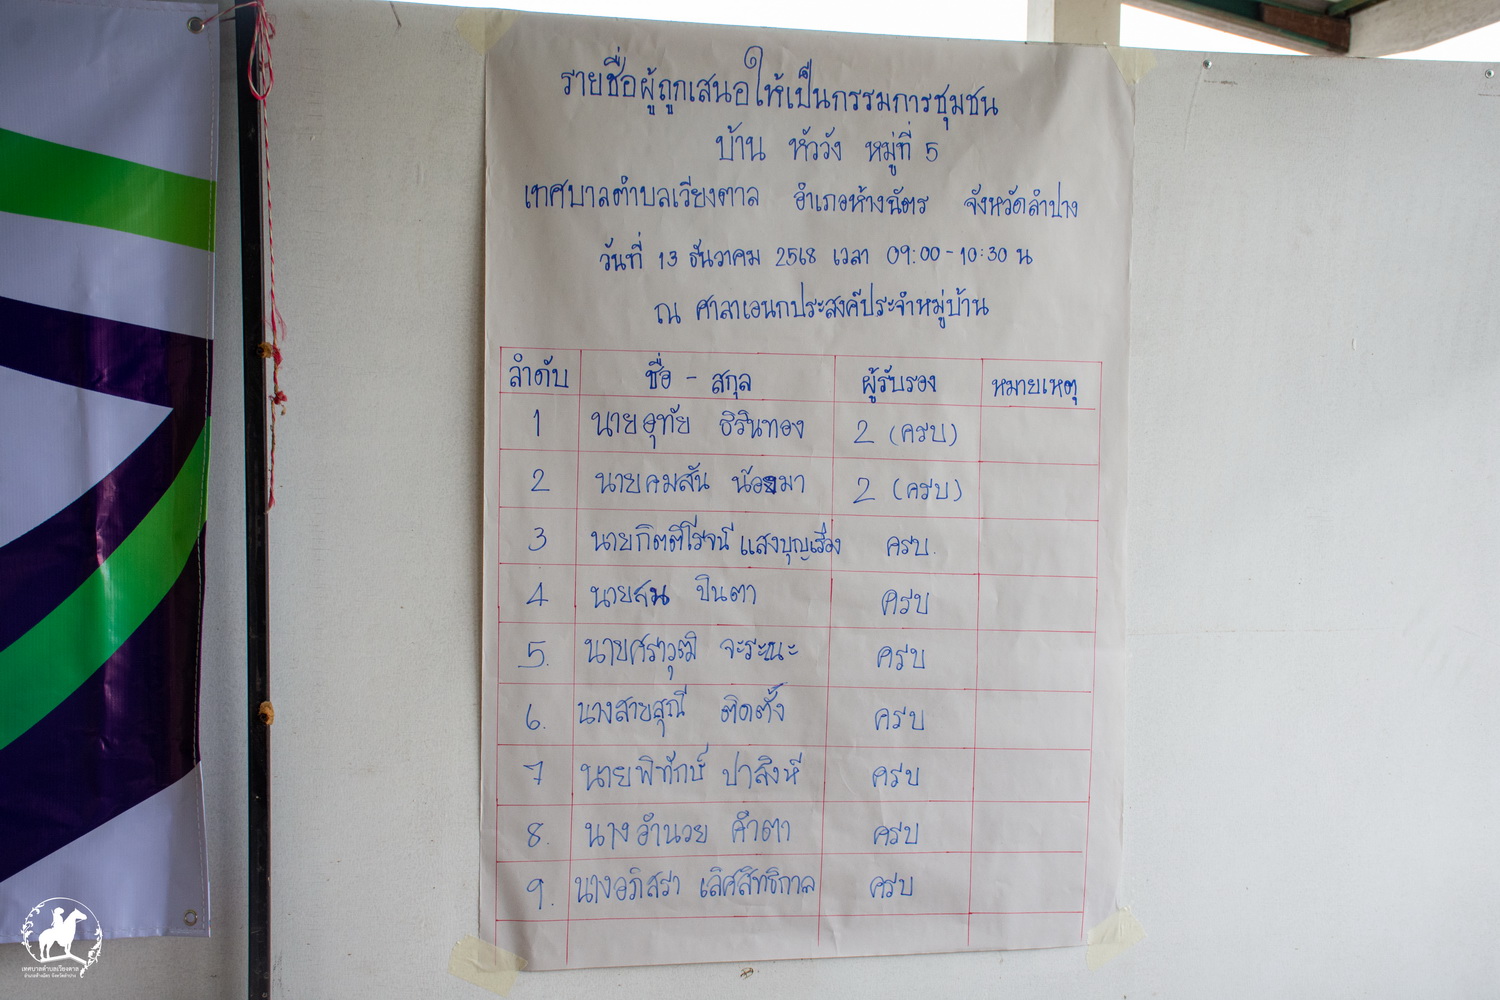 รายชื่อผู้ถูกเสนอให้เป็นกรรมการชุมชน
บ้าน หัววัง หมู่ที่ 5
เทศบาลตำบลเวียงตาล อำเภอห้างฉัตร จังหวัดลำปาง
วันที่ 13 ธันวาคม 2568 เวลา 09:00-10:30 น
ณ ศาลาเอนกประสงค์ประจำหมู่บ้าน
ลำดับ ชื่อ - สกุล ผู้รับรอง หมายเหตุ
1 นายอุทัย ธิรินทอง 2 (ครบ)
2 นายคมสัน น้อยมา 2 (ครบ)
3 นายกิตติโรจน์ แสงบุญเรือง ครบ.
4 นายสม ปินตา ครบ
5. นายศราวุฒิ จะระนะ ครบ
6. นางสายสุณี ติดตั้ง ครบ
7 นายพิทักษ์ ปาสิงห์ ครบ
8. นางอำนวย คำตา ครบ
9. นางอภิสรา เลิศสิทธิกาล ครบ
เทศบาลตำบลเวียงตาล
อำเภอห้างฉัตร จังหวัดลำปาง